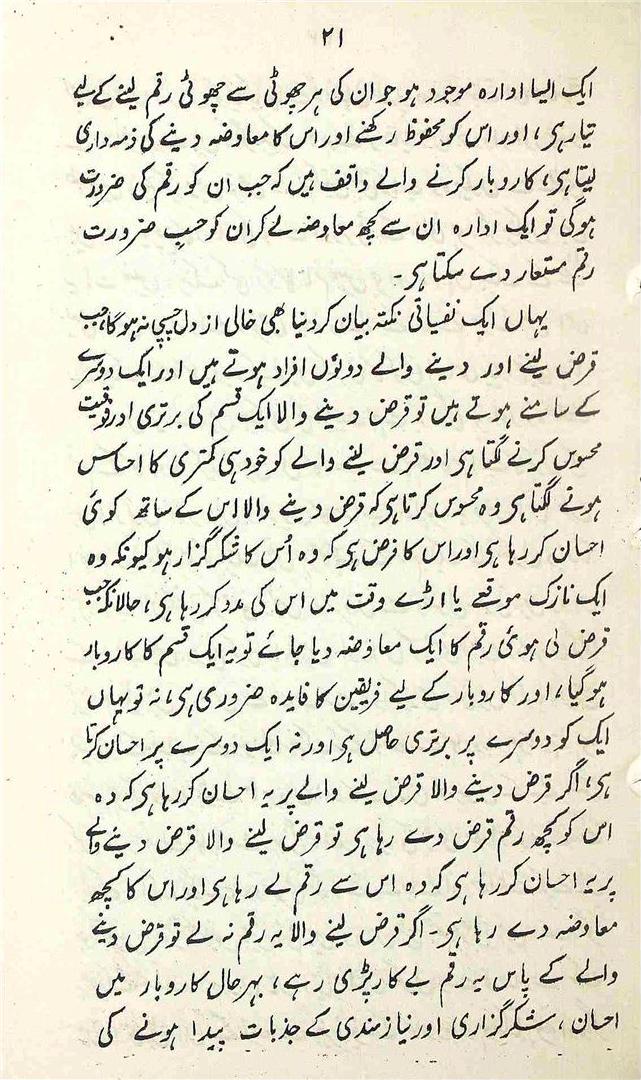 ۲۱
ایک ایسا ادارہ موجود ہو جو ان کی ہر چھوٹی سے چھوٹی رقم لینے کے لیے
تیار ہی، اور اس کو محفوظ رکھنے اور اس کا معاوضہ دینے کی ذمہ داری
لیتا ہی، کاروبار کرنے والے واقف ہیں کہ جب ان کو رقم کی ضرورت
ہوگی تو ایک ادارہ ان سے کچھ معاوضہ لے کر ان کو حسبِ ضرورت
رقم مستعار دے سکتا ہی۔
یہاں ایک نفسیاتی نکتہ بیان کر دینا بھی خالی از دل چسپی نہ ہوگا، جب
قرض لینے اور دینے والے دونوں افراد ہوتے ہیں اور ایک دوسرے
کے سامنے ہوتے ہیں تو قرض دینے والا ایک قسم کی برتری اور فوقیت
محسوس کرنے لگتا ہی اور قرض لینے والے کو خود ہی کمتری کا احساس
ہونے لگتا ہی وہ محسوس کرتا ہی کہ قرض دینے والا اس کے ساتھ کوئی
احسان کر رہا ہی اور اس کا فرض ہی کہ وہ اُس کا شکر گزار ہو کیونکہ وہ
ایک نازک موقعے یا اڑے وقت میں اس کی مدد کر رہا ہی، حالانکہ جب
قرض لی ہوئی رقم کا ایک معاوضہ دیا جائے تو یہ ایک قسم کا کاروبار
ہوگیا، اور کاروبار کے لیے فریقین کا فایدہ ضروری ہی، نہ تو یہاں
ایک کو دوسرے پر برتری حاصل ہی اور نہ ایک دوسرے پر احسان کرتا
ہی، اگر قرض دینے والا قرض لینے والے پر یہ احسان کر رہا ہی کہ وہ
اس کو کچھ رقم قرض دے رہا ہی تو قرض لینے والا قرض دینے والے
پر یہ احسان کر رہا ہی کہ وہ اس سے رقم لے رہا ہی اور اس کا کچھ
معاوضہ دے رہا ہی۔ اگر قرض لینے والا یہ رقم نہ لے تو قرض دینے
والے کے پاس یہ رقم بے کار پڑی رہے، بہرحال کاروبار میں
احسان، شکر گزاری اور نیازمندی کے جذبات پیدا ہونے کی